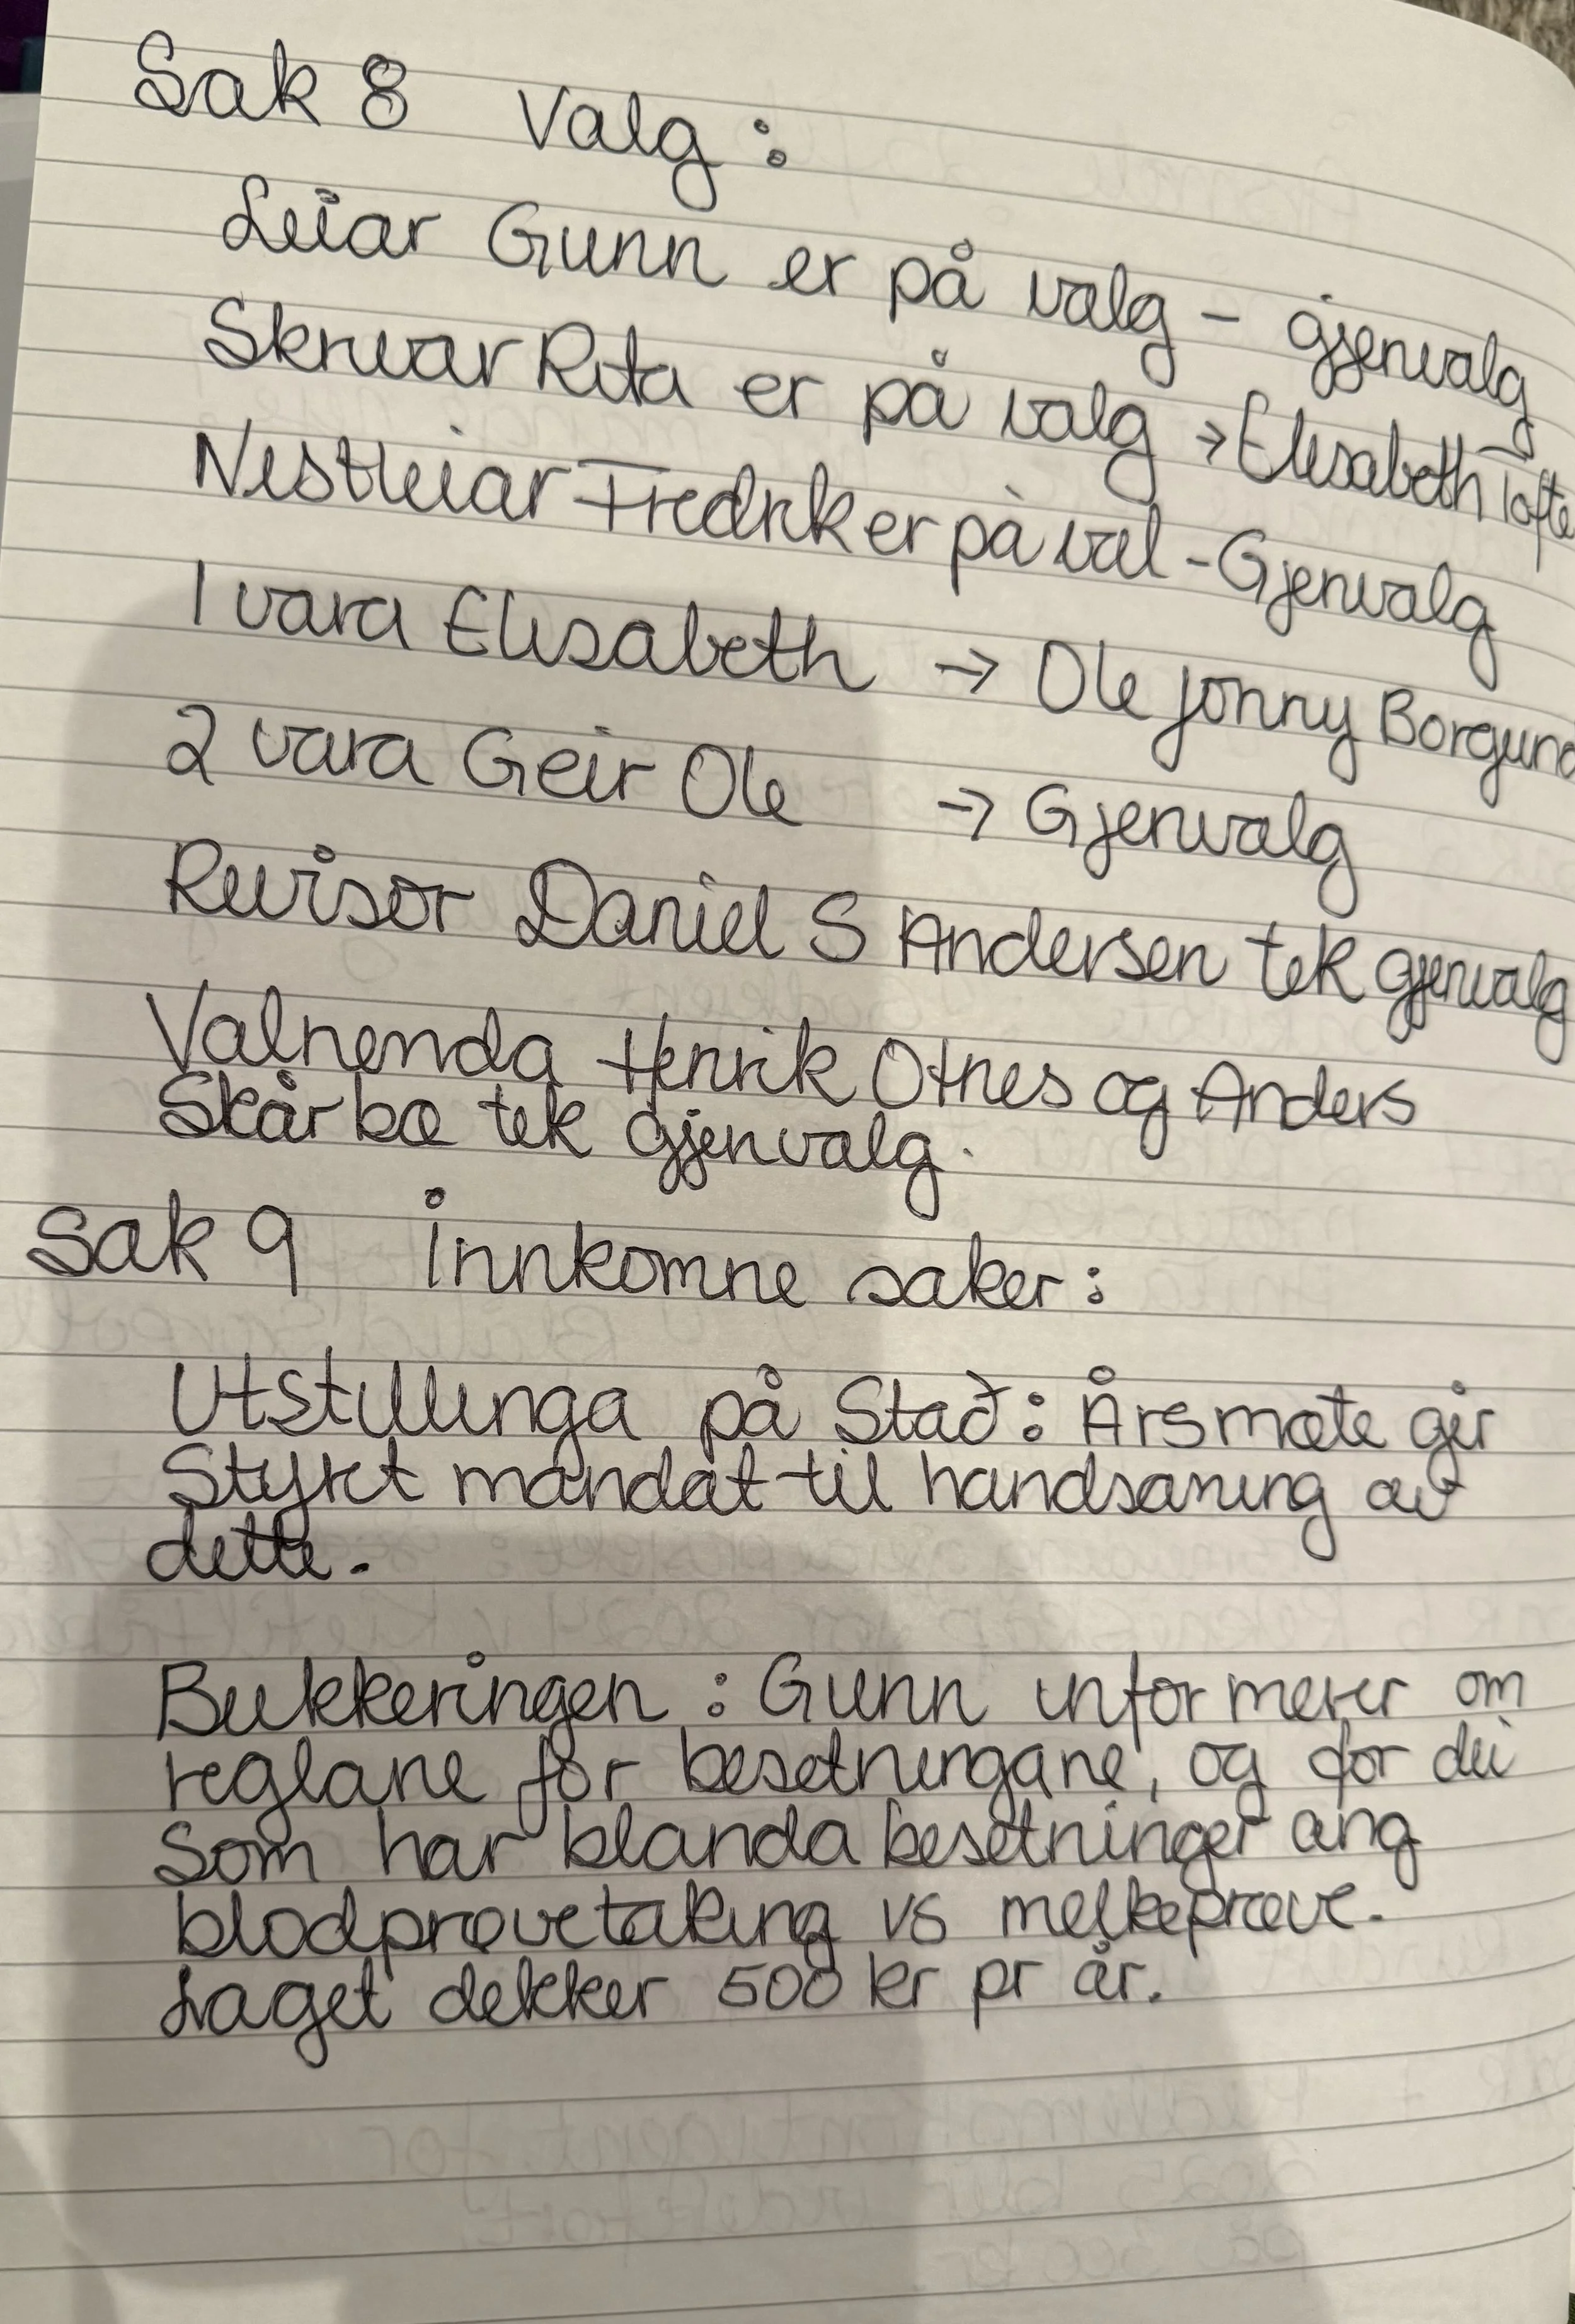 Sak 8 Valg:
Leiar Gunn er på valg - gjenvalg
Skrivar Rita er på valg → Elisabeth Tofte
Nestleiar Fredrik er på val - Gjenvalg
1 vara Elisabeth → Ole Jonny Borgund
2 vara Geir Ole → Gjenvalg
Revisor Daniel S Andersen tek gjenvalg
Valnemda Henrik Otnes og Anders
Skårbø tek gjenvalg.
Sak 9 Innkomne saker:
Utstillinga på Stad: Årsmøte gir
Styret mandat til handsaming av
dette.
Bukkeringen: Gunn informerer om
reglane for besetningane, og for dei
Som har blanda besetninger ang
blodprøvetaking vs melkeprøve.
Laget dekker 500 kr pr år.